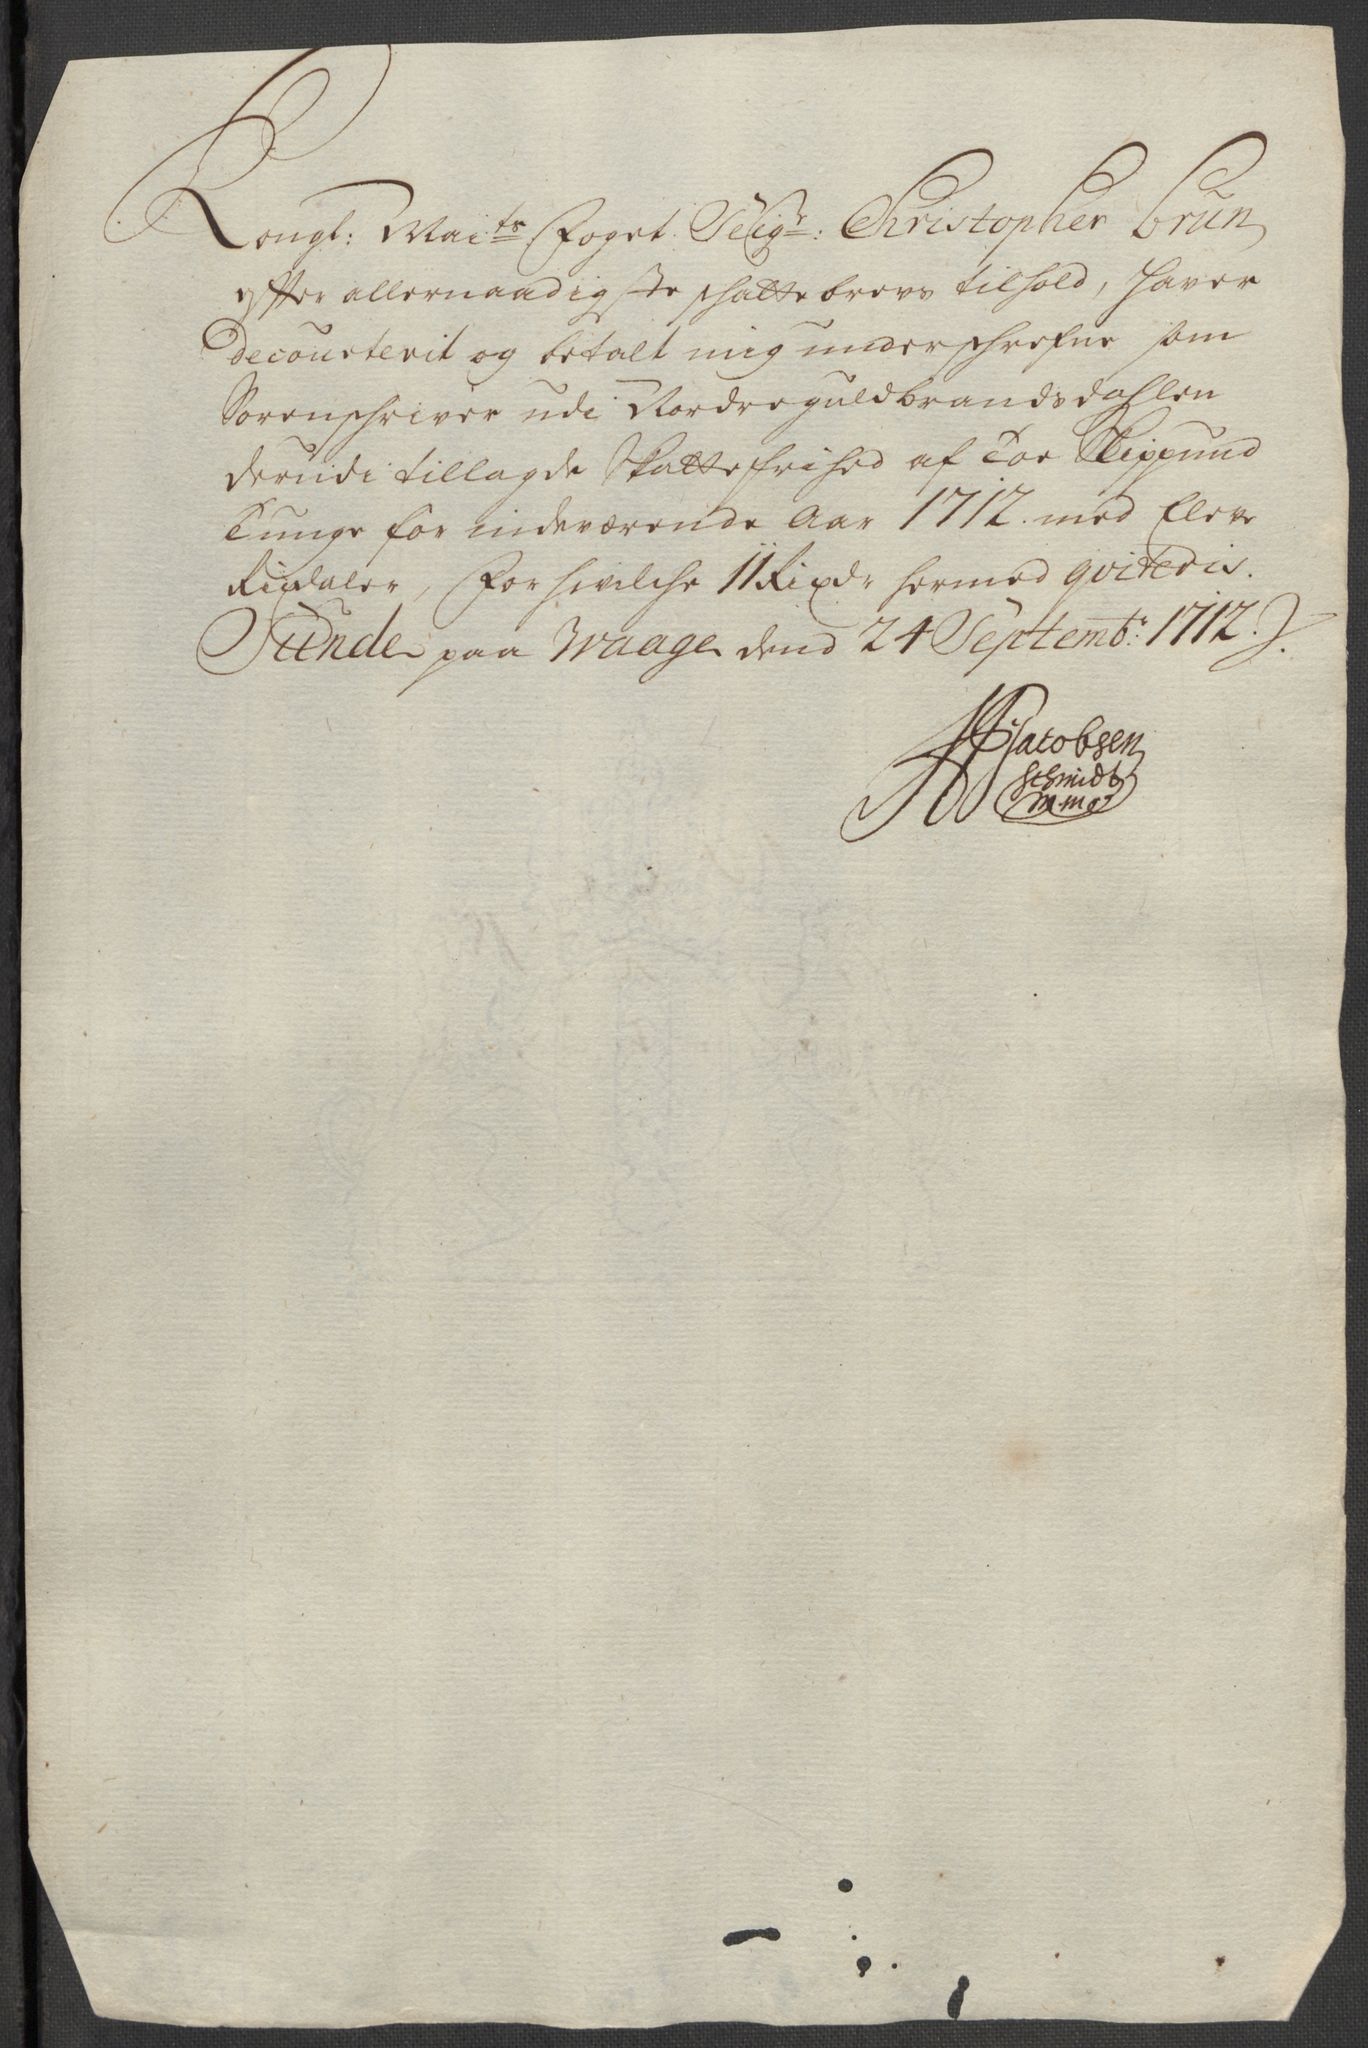 Kongl: Mai:ts Foget Seigr: Christopher Brun
effter allernaadigste schattebrevs tilhold, haver
decourterit og betalt mig underschrefne som
Sorenschriver udi Nordre guldbrandsdahlen
derudi tillagde Skattefrihed af Toe Skippund
Tunge for indeværende Aar 1712. med Eleve
Rixdaler, For hvilche 11 Rixdr hermed qviteris.
Sunde paa Waage dend 24 Septembr: 1712.
Jacobsen
Schmidt
m:mo: